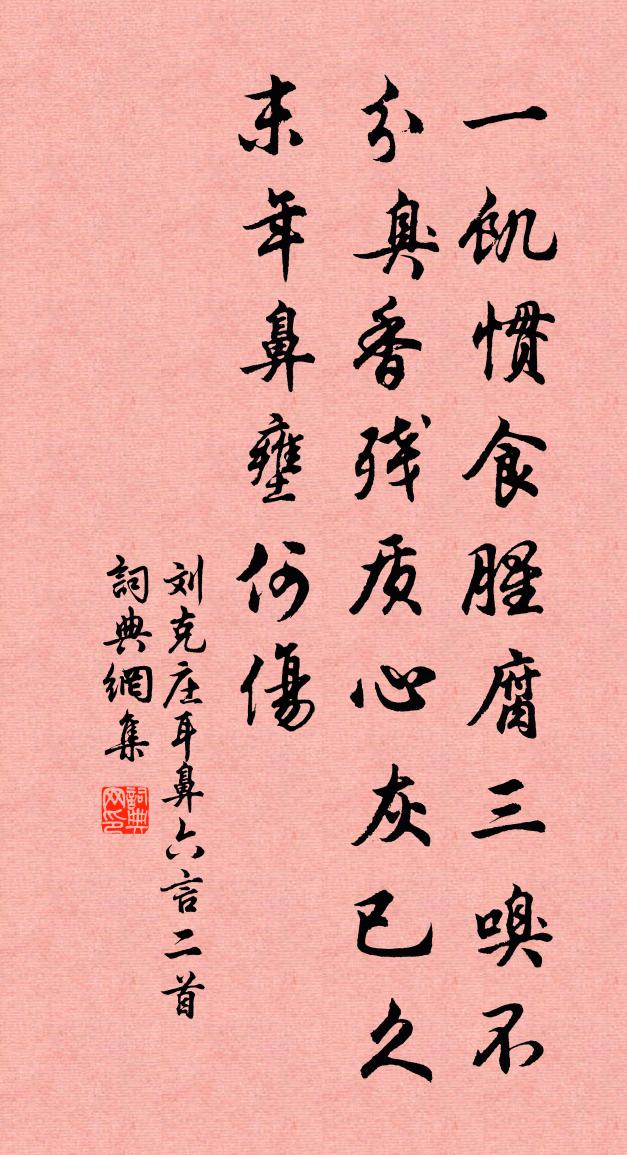 一飢慣食腥腐三嗅不
分臭香残质心灰已久
末年鼻壅何傷
刘克庄耳鼻六言二首
詞典網集
詞典网印